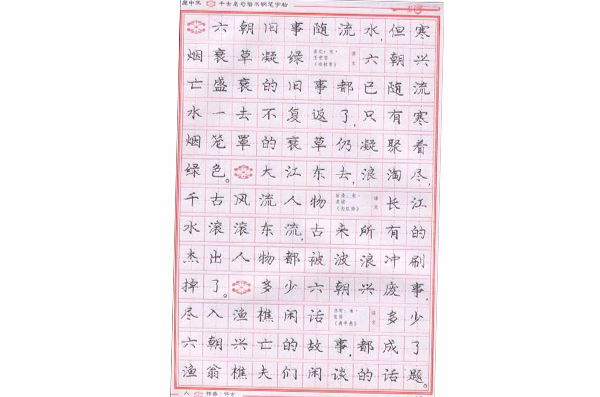 千古名句楷书钢笔字帖
六朝旧事随流水,但寒
烟衰草凝绿 出处:宋·王安石《桂枝香》 译文 六朝兴
亡盛衰的旧事都已随流
水一去不复返了,只有寒
烟笼罩的衰草仍凝聚着
绿色。大江东去,浪淘尽,
千古风流人物 出处:宋·苏轼《念奴娇》 译文 长江
水滚滚东流,古来所有的
杰出人物都被波浪冲刷
掉了。多少六朝兴废事,
尽入渔樵闲话 出处:宋· 译文 多少
六朝兴亡的故事,都成了
渔翁樵夫们闲谈的话题。